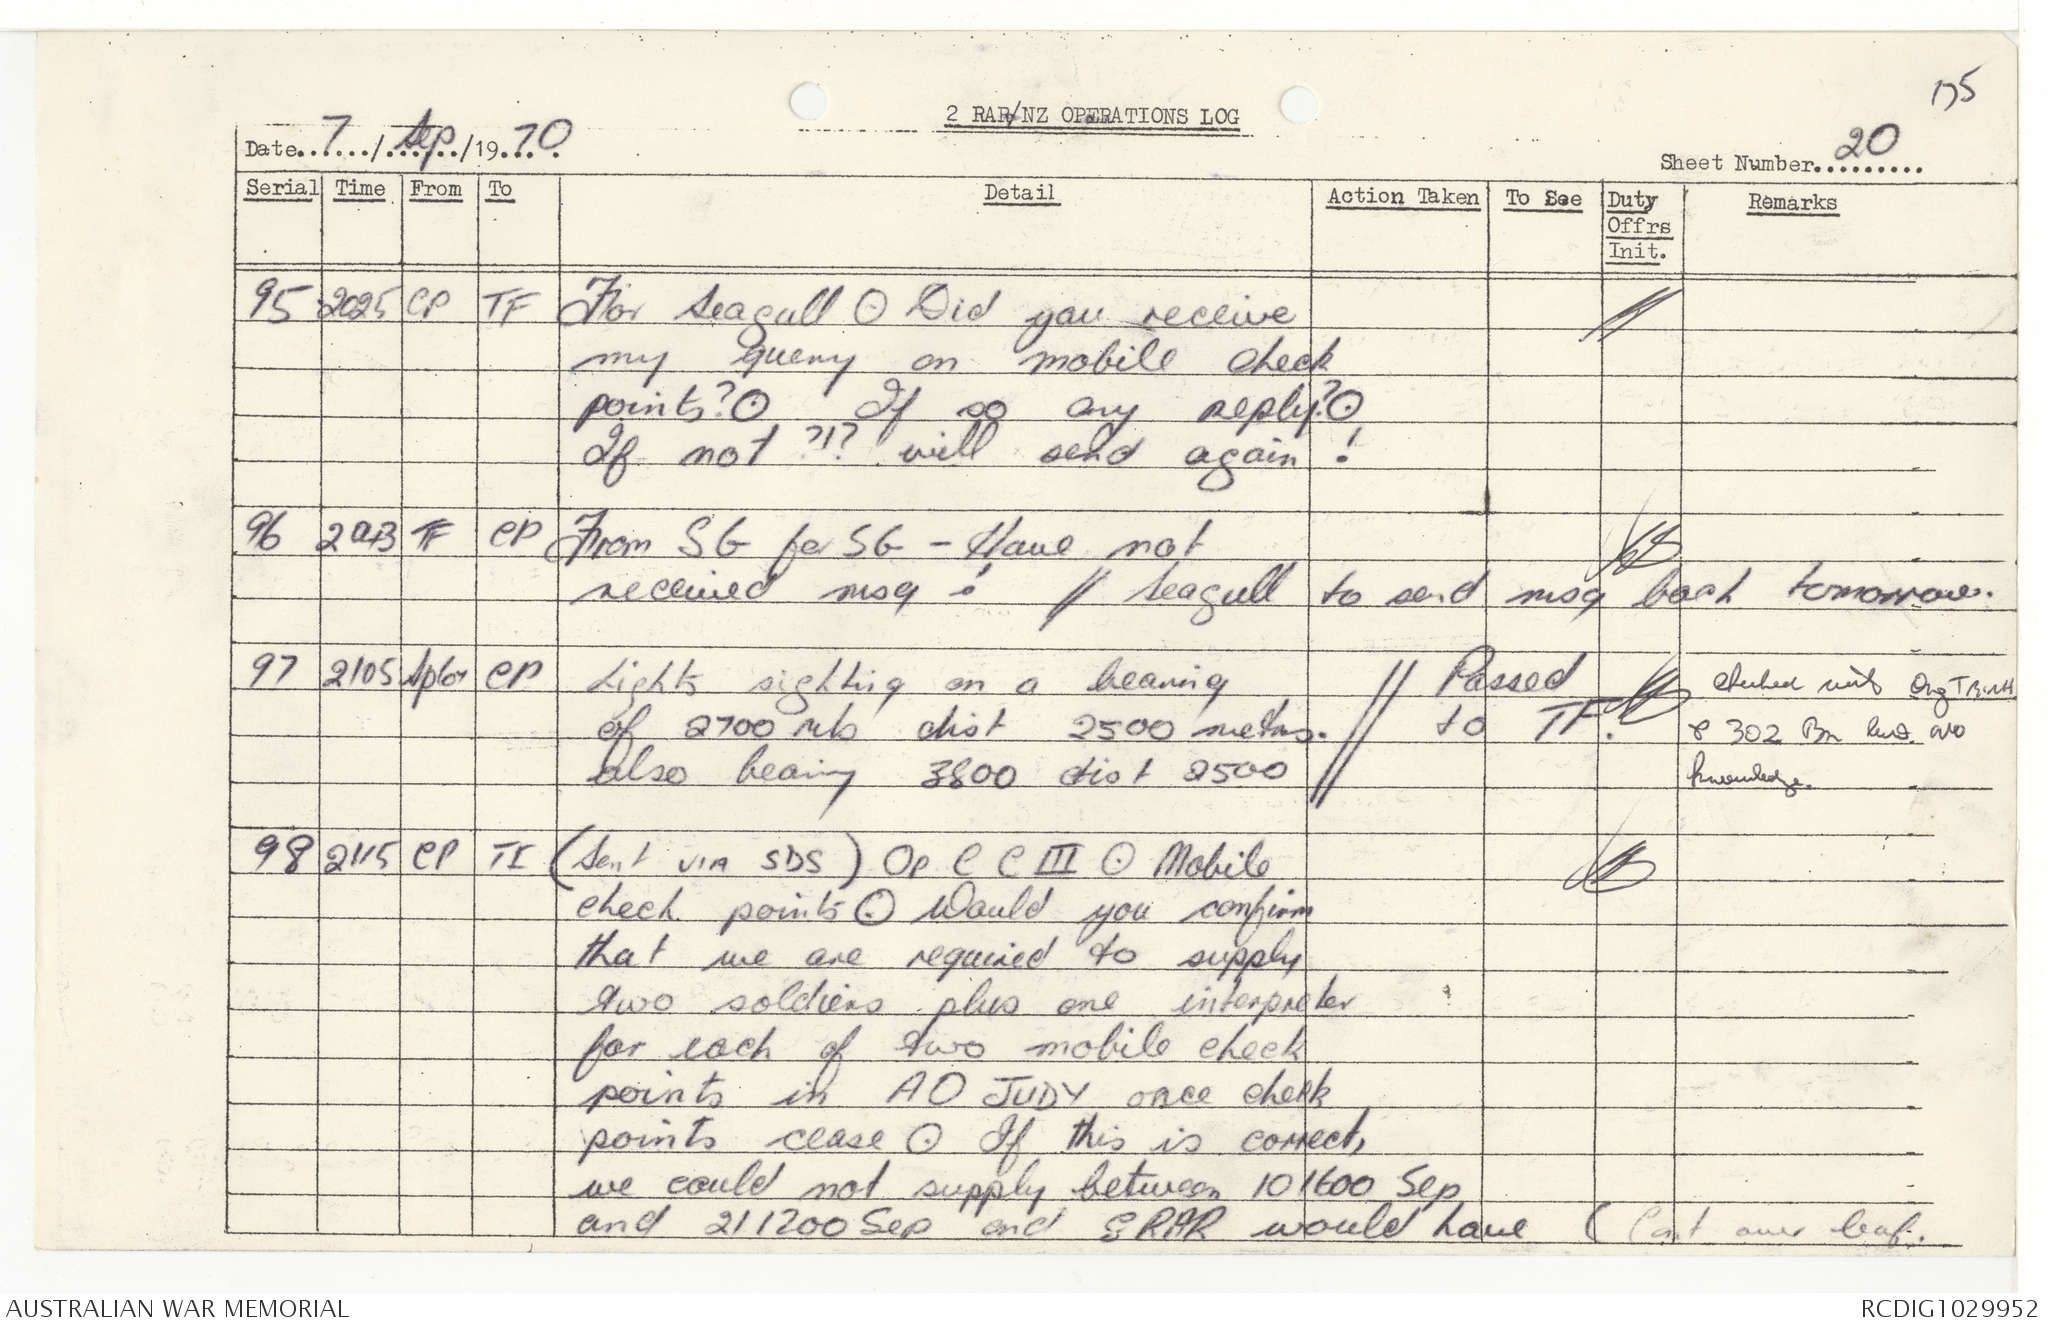 175
2 RAR/NZ OPERATIONS LOG
Date 7/Sep/1970
Sheet Number 20
Serial Time From To Detail Action Taken To See Duty Offrs Init. Remarks
95 2025 CP TF For Seagull ⊙ Did you receive
my query on mobile check
points? ⊙ If so any reply? ⊙
If not ?!? will send again!
96 TF CP From SG for SG - Have not
received msg! // Seagull to send msg back tomorrow.
97 2105 CP Lights sighting on a bearing // Passed checked with
of 2700 mls dist 2500 metres. // to TF. & 302 Bn no
also bearing 3800 dist 2500 // knowledge.
98 2115 CP TF (Sent VIA SDS) Op C C III ⊙ Mobile
check points ⊙ Would you confirm
that we are required to supply
two soldiers plus one interpreter
for each of two mobile check
points in AO JUDY once check
points cease ⊙ If this is correct,
we could not supply between 101600 Sep
and 211200 Sep and 8RAR would have (Cont over leaf.
AUSTRALIAN WAR MEMORIAL
RCDIG1029952